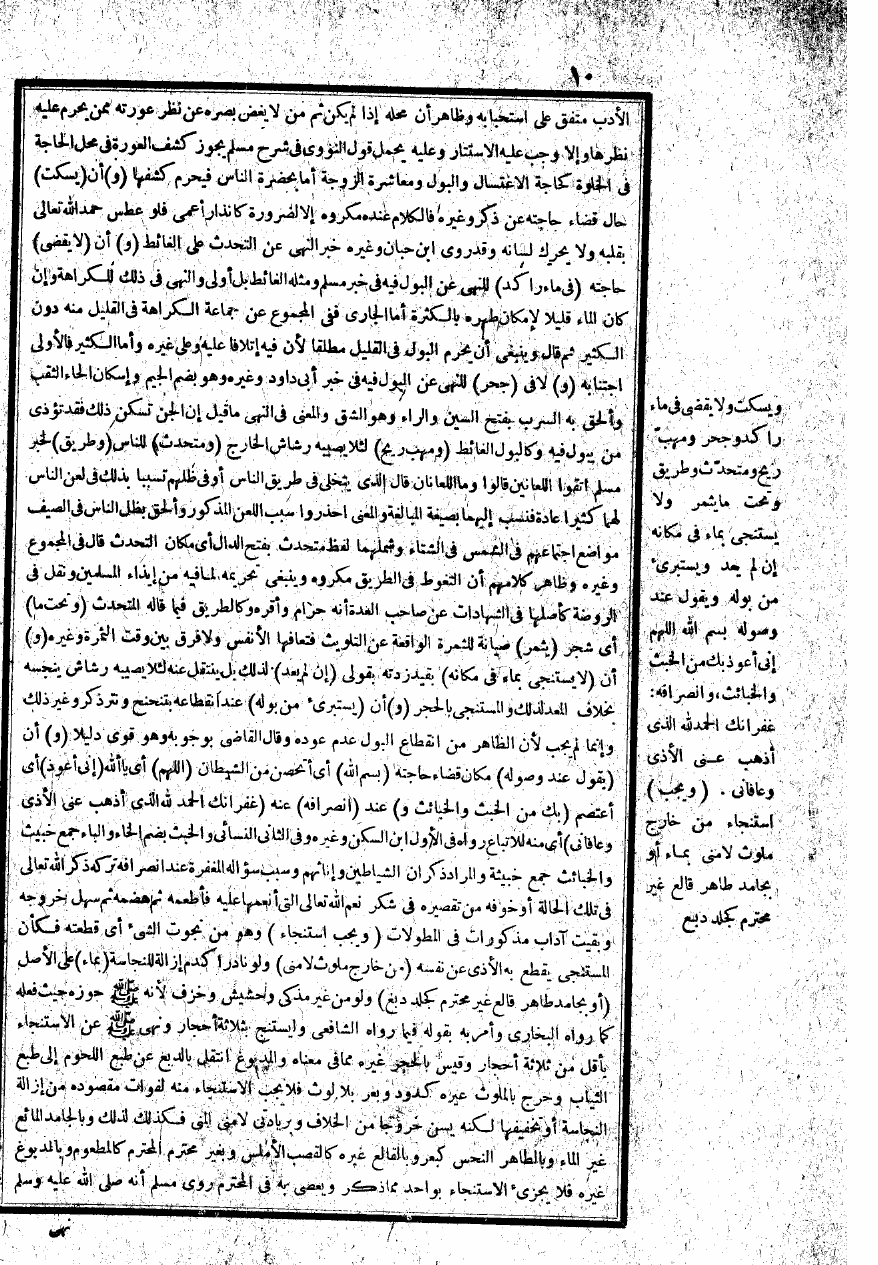 ١٠
الأدب متفق على استحبابه وظاهر أن محله إذا لم يكن ثم من لا يغض بصره عن نظر عورته ممن يحرم عليه
نظرها وإلا وجب عليه الاستتار وعليه يحمل قول النووى فى شرح مسلم يجوز كشف العورة فى محل الحاجة
فى الخلوة كحاجة الاغتسال والبول ومعاشرة الزوجة أما بحضرة الناس فيحرم كشفها (و) أن (يسكت)
حال قضاء حاجته عن ذكر وغيره فالكلام عنده مكروه إلا لضرورة كانذار أعمى فلو عطس حمد الله تعالى
بقلبه ولا يحرك لسانه وقد روى ابن حبان وغيره خبر النهى عن التحدث على الغائط (و) أن (لا يقضى)
حاجته (فى ماء راكد) للنهى عن البول فيه فى خبر مسلم ومثله الغائط بل أولى والنهى فى ذلك للكراهة وإن
كان الماء قليلا لإمكان طهره بالكثرة أما الجارى ففى المجموع عن جماعة الكراهة فى القليل منه دون
الكثير ثم قال وينبغى أن يحرم البول فى القليل مطلقا لأن فيه إتلافا عليه وعلى غيره وأما الكثير فالأولى
اجتنابه (و) لا فى (جحر) للنهى عن البول فيه فى خبر أبى داود وغيره وهو بضم الجيم وإسكان الحاء الثقب
وألحق به السرب بفتح السين والراء وهو الشق والمعنى فى النهى ما قيل إن الجن تسكن ذلك فقد تؤذى
من يبول فيه وكالبول الغائط (ومهب ريح) لئلا يصيبه رشاش الخارج (ومتحدث) للناس (وطريق) لخبر
مسلم اتقوا اللعانين قالوا وما اللعانان قال الذى يتخلى فى طريق الناس أو فى ظلهم تسببا بذلك فى لعن الناس
لهما كثيرا عادة فنسب إليهما بصيغة المبالغة والمعنى احذروا سبب اللعن المذكور وألحق بظل الناس فى الصيف
مواضع اجتماعهم فى الشمس فى الشتاء وشملهما لفظ متحدث بفتح الدال أى مكان التحدث قال فى المجموع
وغيره وظاهر كلامهم أن التغوط فى الطريق مكروه وينبغى تحريمه لما فيه من إيذاء المسلمين ونقل فى
الروضة كأصلها فى الشهادات عن صاحب العدة أنه حرام وأقره وكالطريق فيما قاله المتحدث (وتحت ما)
أى شجر (يثمر) صيانة للثمرة الواقعة عن التلويث فتعافها الأنفس ولا فرق بين وقت الثمرة وغيره (و)
أن (لا يستنجى بماء فى مكانه) بقيد زدته بقولى (إن لم يعد) لذلك بل ينتقل عنه لئلا يصيبه رشاش ينجسه
بخلاف المعد لذلك والمستنجى بالحجر (و) أن (يستبرىء من بوله) عند انقطاعه بتنحنح ونتر ذكر وغير ذلك
وإنما لم يجب لأن الظاهر من انقطاع البول عدم عوده وقال القاضى بوجوبه وهو قوى دليلا (و) أن
(يقول عند وصوله) مكان قضاء حاجته (بسم الله) أى أتحصن من الشيطان (اللهم) أى يا ألله (إنى أعوذ) أى
أعتصم (بك من الخبث والخبائث و) عند (انصرافه) عنه (غفرانك الحمد لله الذى أذهب عنى الأذى
وعافانى) أى منه للاتباع رواه فى الأول ابن السكن وغيره وفى الثانى النسائى والخبث بضم الخاء والباء جمع خبيث
والخبائث جمع خبيثة والمراد ذكران الشياطين وإناثهم وسبب سؤاله المغفرة عند انصرافه تركه ذكر الله تعالى
فى تلك الحالة أو خوفه من تقصيره فى شكر نعم الله تعالى التى أنعمها عليه فأطعمه ثم هضمه ثم سهل خروجه
وبقيت آداب مذكورات فى المطولات (ويجب استنجاء) وهو من نجوت الشىء أى قطعته فكأن
المستنجى يقطع به الأذى عن نفسه (من خارج ملوث لا منى) ولو نادرا كدم إزالة للنجاسة (بماء) على الأصل
(أو بجامد طاهر قالع غير محترم كجلد دبغ) ولو من غير مذكى وحشيش وخزف لأنه ﷺ جوزه حيث فعله
كما رواه البخارى وأمر به بقوله فيما رواه الشافعى وليستنج بثلاثة أحجار ونهى ﷺ عن الاستنجاء
بأقل من ثلاثة أحجار وقيس بالحجر غيره مما فى معناه والمدبوغ انتقل بالدبغ عن طبع اللحوم إلى طبع
الثياب وخرج بالملوث غيره كدود وبعر بلا لوث فلا يجب الاستنجاء منه لفوات مقصوده من إزالة
النجاسة أو تخفيفها لكنه يسن خروجا من الخلاف وبزيادتى لا منى المنى فكذلك لذلك وبالجامد المائع
غير الماء وبالطاهر النجس كبعر وبالقالع غيره كالقصب الأملس وبغير محترم المحترم كالمطعوم وبالمدبوغ
غيره فلا يجزىء الاستنجاء بواحد مما ذكر ويعصى به فى المحترم روى مسلم أنه صلى الله عليه وسلم
نهى
ويسكت ولا يقضى فى ماء
راكد وجحر ومهب
ريح ومتحدث وطريق
وتحت ما يثمر ولا
يستنجى بماء فى مكانه
إن لم يعد ويستبرىء
من بوله ويقول عند
وصوله بسم الله اللهم
إنى أعوذ بك من الخبث
والخبائث، وانصرافه:
غفرانك الحمد لله الذى
أذهب عنى الأذى
وعافانى . (ويجب)
استنجاء من خارج
ملوث لا منى بماء أو
بجامد طاهر قالع غير
محترم كجلد دبغ